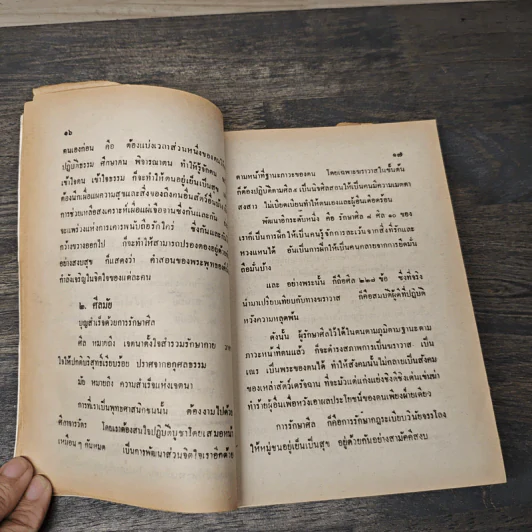 ๑๖
ตนเองก่อน คือ ต้องแบ่งเวลาส่วนหนึ่งของตนไว้
ปฏิบัติธรรม ศึกษาตน พิจารณาตน ทำให้รู้จักตน
เข้าใจตน เข้าใจธรรม ก็จะทำให้ตนอยู่เย็นเป็นสุข
ต้องนึกเผื่อแผ่ความสุขและสิ่งของถึงคนอื่นสัตว์อื่น
การช่วยเกลือสงเคราะห์เผื่อแผ่เจือจานซึ่งกันและกัน
จะแพร่วงแห่งการคบหานับถือรักใคร่ ซึ่งกันและกัน
กว้างขวางออกไป ก็จะทำให้สามารถปรองดองอยู่ด้วย
อย่างสงบสุข ก็แสดงว่า คำสอนของพระพุทธองค์
กำลังเจริญในจิตใจของแต่ละคน
๒. ศีลมัย
บุญสำเร็จด้วยการรักษาศีล
ศีล หมายถึง เจตนาตั้งใจสำรวมรักษากาย
ใจให้ปกติบริสุทธิ์เรียบร้อย ปราศจากอกุศลธรรม
มัย หมายถึง ความสำเร็จแห่งเจตนา
การที่เราเป็นพุทธศาสนิกชนนั้น ต้องงามไปด้วย
ศีลาจารวัตร โดยเราต้องสนใจปฏิบัติบูชาโดยเสมอ
เหมือน ๆ กันหมด เป็นการพัฒนาส่วนจิตใจเราอีกด้วย
๑๗
ตามหน้าที่ฐานะภาวะของตน โดยเฉพาะฆราวาสในชั้นต้น
ก็ต้องปฏิบัติตามศีล ๕ เป็นนิจศีลสอนให้เป็นคนมีความเมตตา
สงสาร ไม่เบียดเบียนทำให้ตนเองและผู้อื่นเดือดร้อน
พัฒนาอีกระดับหนึ่ง คือ รักษาศีล ๘ ศีล ๑๐ ของ
เราที่เป็นการฝึกให้เป็นคนรู้จักการละเว้นจากสิ่งที่รักและ
หวงแหนได้ อันเป็นการฝึกให้เป็นคนคลายจากการยึดมั่น
ถือมั่นบ้าง
และ อย่างพระนั้น ก็ถือศีล ๒๒๗ ข้อ ซึ่งที่จริง
นำมาเปรียบเทียบกับทางฆราวาส ก็คือสมบัติผู้ดีที่ปฏิบัติ
หวังความหลุดพ้น
ดังนั้น ผู้รักษาศีลไว้ได้ในตนตามภูมิตามฐานะตาม
ภาวะหน้าที่ตนแล้ว ก็จะดำรงสภาพการเป็นฆราวาส เป็น
เณร เป็นพระของตนได้ ทำให้สังคมนั้นไม่กลายเป็นสังคม
ของเหล่าสัตว์เดรัจฉาน ที่จะมัวแต่แก่งแย่งชิงดีชิงเด่นเข่นฆ่า
ทำร้ายผู้อื่นเพื่อหวังเอาผลประโยชน์ของตนเพียงฝ่ายเดียว
การรักษาศีล ก็คือการรักษากฎระเบียบวินัยจรรโลง
ให้หมู่ชนอยู่เย็นเป็นสุข อยู่ด้วยกันอย่างสามัคคีสงบ